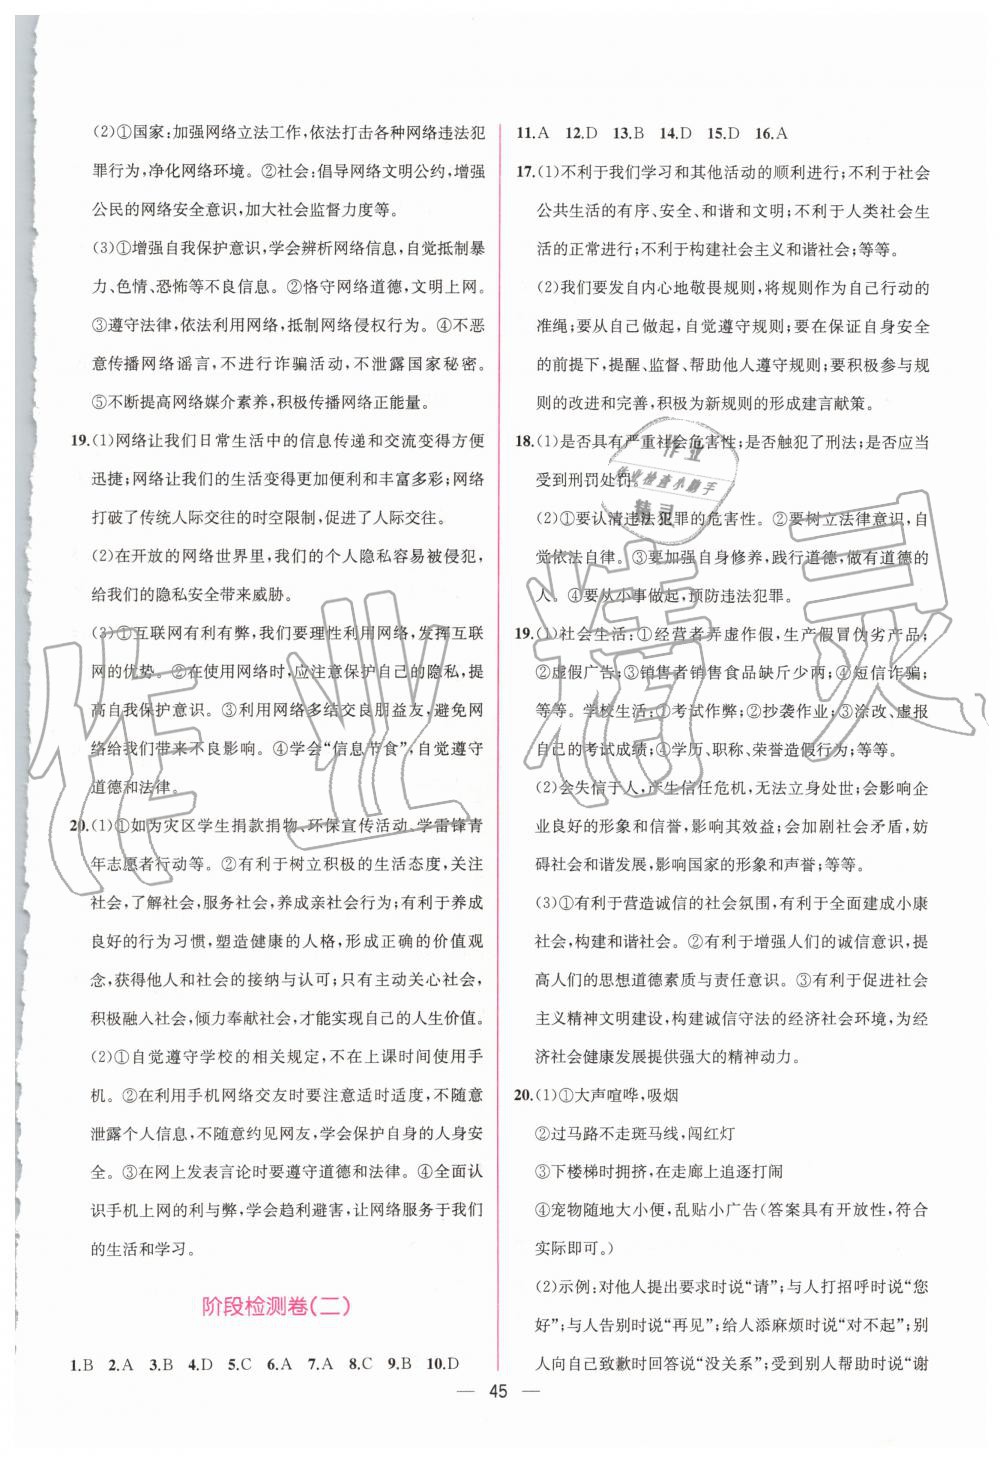 (2)①国家:加强网络立法工作,依法打击各种网络违法犯
罪行为,净化网络环境。②社会:倡导网络文明公约,增强
公民的网络安全意识,加大社会监督力度等。
(3)①增强自我保护意识,学会辨析网络信息,自觉抵制暴
力、色情、恐怖等不良信息。②恪守网络道德,文明上网。
③遵守法律,依法利用网络,抵制网络侵权行为。④不恶
意传播网络谣言,不进行诈骗活动,不泄露国家秘密。
⑤不断提高网络媒介素养,积极传播网络正能量。
19.(1)网络让我们日常生活中的信息传递和交流变得方便
迅捷;网络让我们的生活变得更加便利和丰富多彩;网络
打破了传统人际交往的时空限制,促进了人际交往。
(2)在开放的网络世界里,我们的个人隐私容易被侵犯,
给我们的隐私安全带来威胁。
(3)①互联网有利有弊,我们要理性利用网络,发挥互联
网的优势。②在使用网络时,应注意保护自己的隐私,提
高自我保护意识。③利用网络多结交良朋益友,避免网
络给我们带来不良影响。④学会“信息节食”,自觉遵守
道德和法律。
20.(1)①如为灾区学生捐款捐物、环保宣传活动、学雷锋青
年志愿者行动等。②有利于树立积极的生活态度,关注
社会,了解社会,服务社会,养成亲社会行为;有利于养成
良好的行为习惯,塑造健康的人格,形成正确的价值观
念,获得他人和社会的接纳与认可;只有主动关心社会,
积极融入社会,倾力奉献社会,才能实现自己的人生价值。
(2)①自觉遵守学校的相关规定,不在上课时间使用手
机。②在利用手机网络交友时要注意适时适度,不随意
泄露个人信息,不随意约见网友,学会保护自身的人身安
全。③在网上发表言论时要遵守道德和法律。④全面认
识手机上网的利与弊,学会趋利避害,让网络服务于我们
的生活和学习。
阶段检测卷(二)
1.B 2.A 3.B 4.D 5.C 6.A 7.A 8.C 9.B 10.D
11.A 12.D 13.B 14.D 15.D 16.A
17.(1)不利于我们学习和其他活动的顺利进行;不利于社会
公共生活的有序、安全、和谐和文明;不利于人类社会生
活的正常进行;不利于构建社会主义和谐社会;等等。
(2)我们要发自内心地敬畏规则,将规则作为自己行动的
准绳;要从自己做起,自觉遵守规则;要在保证自身安全
的前提下,提醒、监督、帮助他人遵守规则;要积极参与规
则的改进和完善,积极为新规则的形成建言献策。
18.(1)是否具有严重社会危害性;是否触犯了刑法;是否应当
受到刑罚处罚。
(2)①要认清违法犯罪的危害性。②要树立法律意识,自
觉依法自律。③要加强自身修养,践行道德,做有道德的
人。④要从小事做起,预防违法犯罪。
19.(1)社会生活:①经营者弄虚作假,生产假冒伪劣产品;
②虚假广告;③销售者销售食品缺斤少两;④短信诈骗;
等等。学校生活:①考试作弊;②抄袭作业;③涂改、虚报
自己的考试成绩;④学历、职称、荣誉造假行为;等等。
(2)会失信于人,产生信任危机,无法立身处世;会影响企
业良好的形象和信誉,影响其效益;会加剧社会矛盾,妨
碍社会和谐发展,影响国家的形象和声誉;等等。
(3)①有利于营造诚信的社会氛围,有利于全面建成小康
社会,构建和谐社会。②有利于增强人们的诚信意识,提
高人们的思想道德素质与责任意识。③有利于促进社会
主义精神文明建设,构建诚信守法的经济社会环境,为经
济社会健康发展提供强大的精神动力。
20.(1)①大声喧哗,吸烟
②过马路不走斑马线,闯红灯
③下楼梯时拥挤,在走廊上追逐打闹
④宠物随地大小便,乱贴小广告(答案具有开放性,符合
实际即可。)
(2)示例:对他人提出要求时说“请”;与人打招呼时说“您
好”;与人告别时说“再见”;给人添麻烦时说“对不起”;别
人向自己致歉时回答说“没关系”;受到别人帮助时说“谢
— 45 —
作业
作业检查小助手
精灵
作业精灵